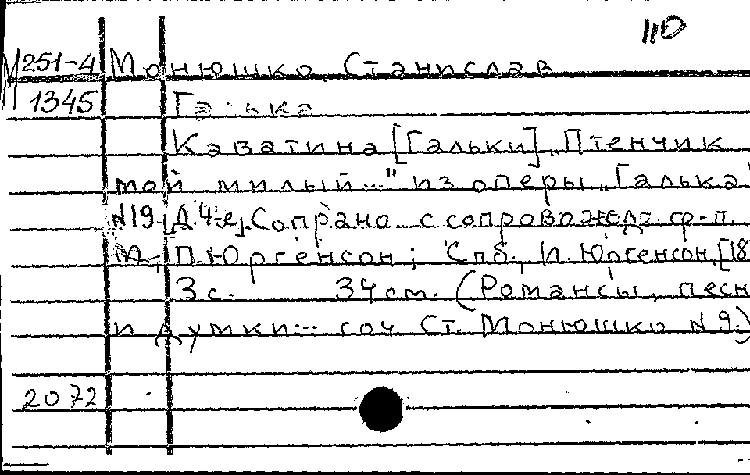 110
М 251-4 Монюшко Станислав
1345 Галька
Каватина [Гальки] „Птенчик
мой милый..." из оперы „Галька"
N19 [Д. 4-е]. Сопрано с сопровожд. ф-п.
М., П. Юргенсон; Спб., И. Юргенсон, [18
3 с. 34 см. (Романсы, песн
и думки... соч. Ст. Монюшко N 9.)
2072